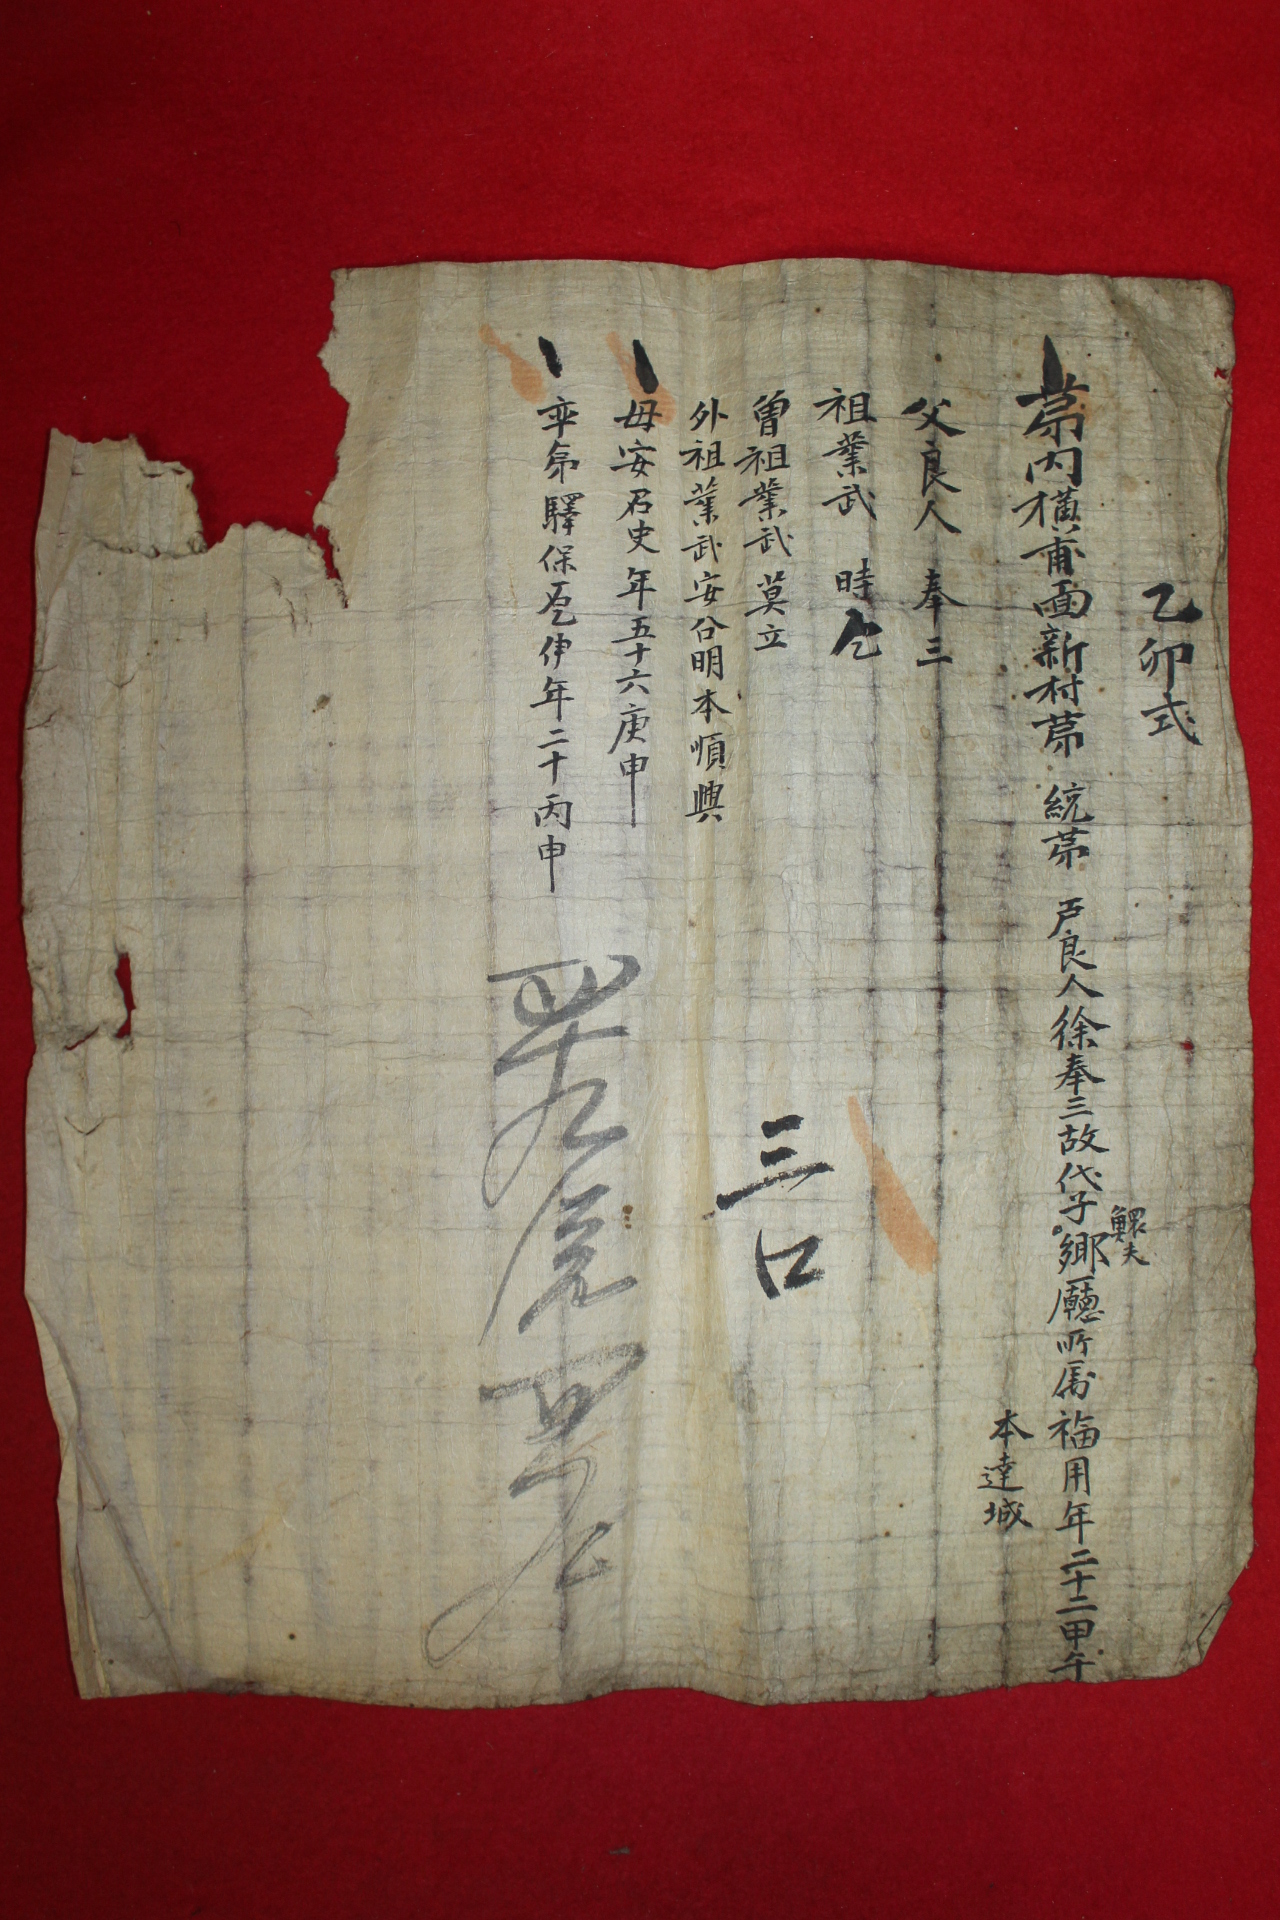 乙卯式
第內橫甫面新村第 統第 戶良人徐奉三故代子鄉廳所屬福用年二十二甲午
鰥夫
本達城
父良人 奉三
祖業武 時
曾祖業武 莫立
外祖業武安公明本順興
母安召史年五十六庚申
率弟驛保 年二十丙申
三口